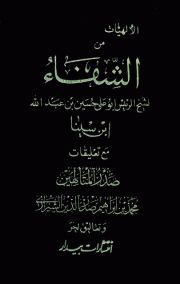 الالهيات
من
الشفاء
لشيخ الرئيس ابو علی حسين بن عبد الله
ابن سينا
مع تعليقات
صدر المتألهين
محمد بن ابراهيم صدر الدين الشيرازی
انتشارات بيدار